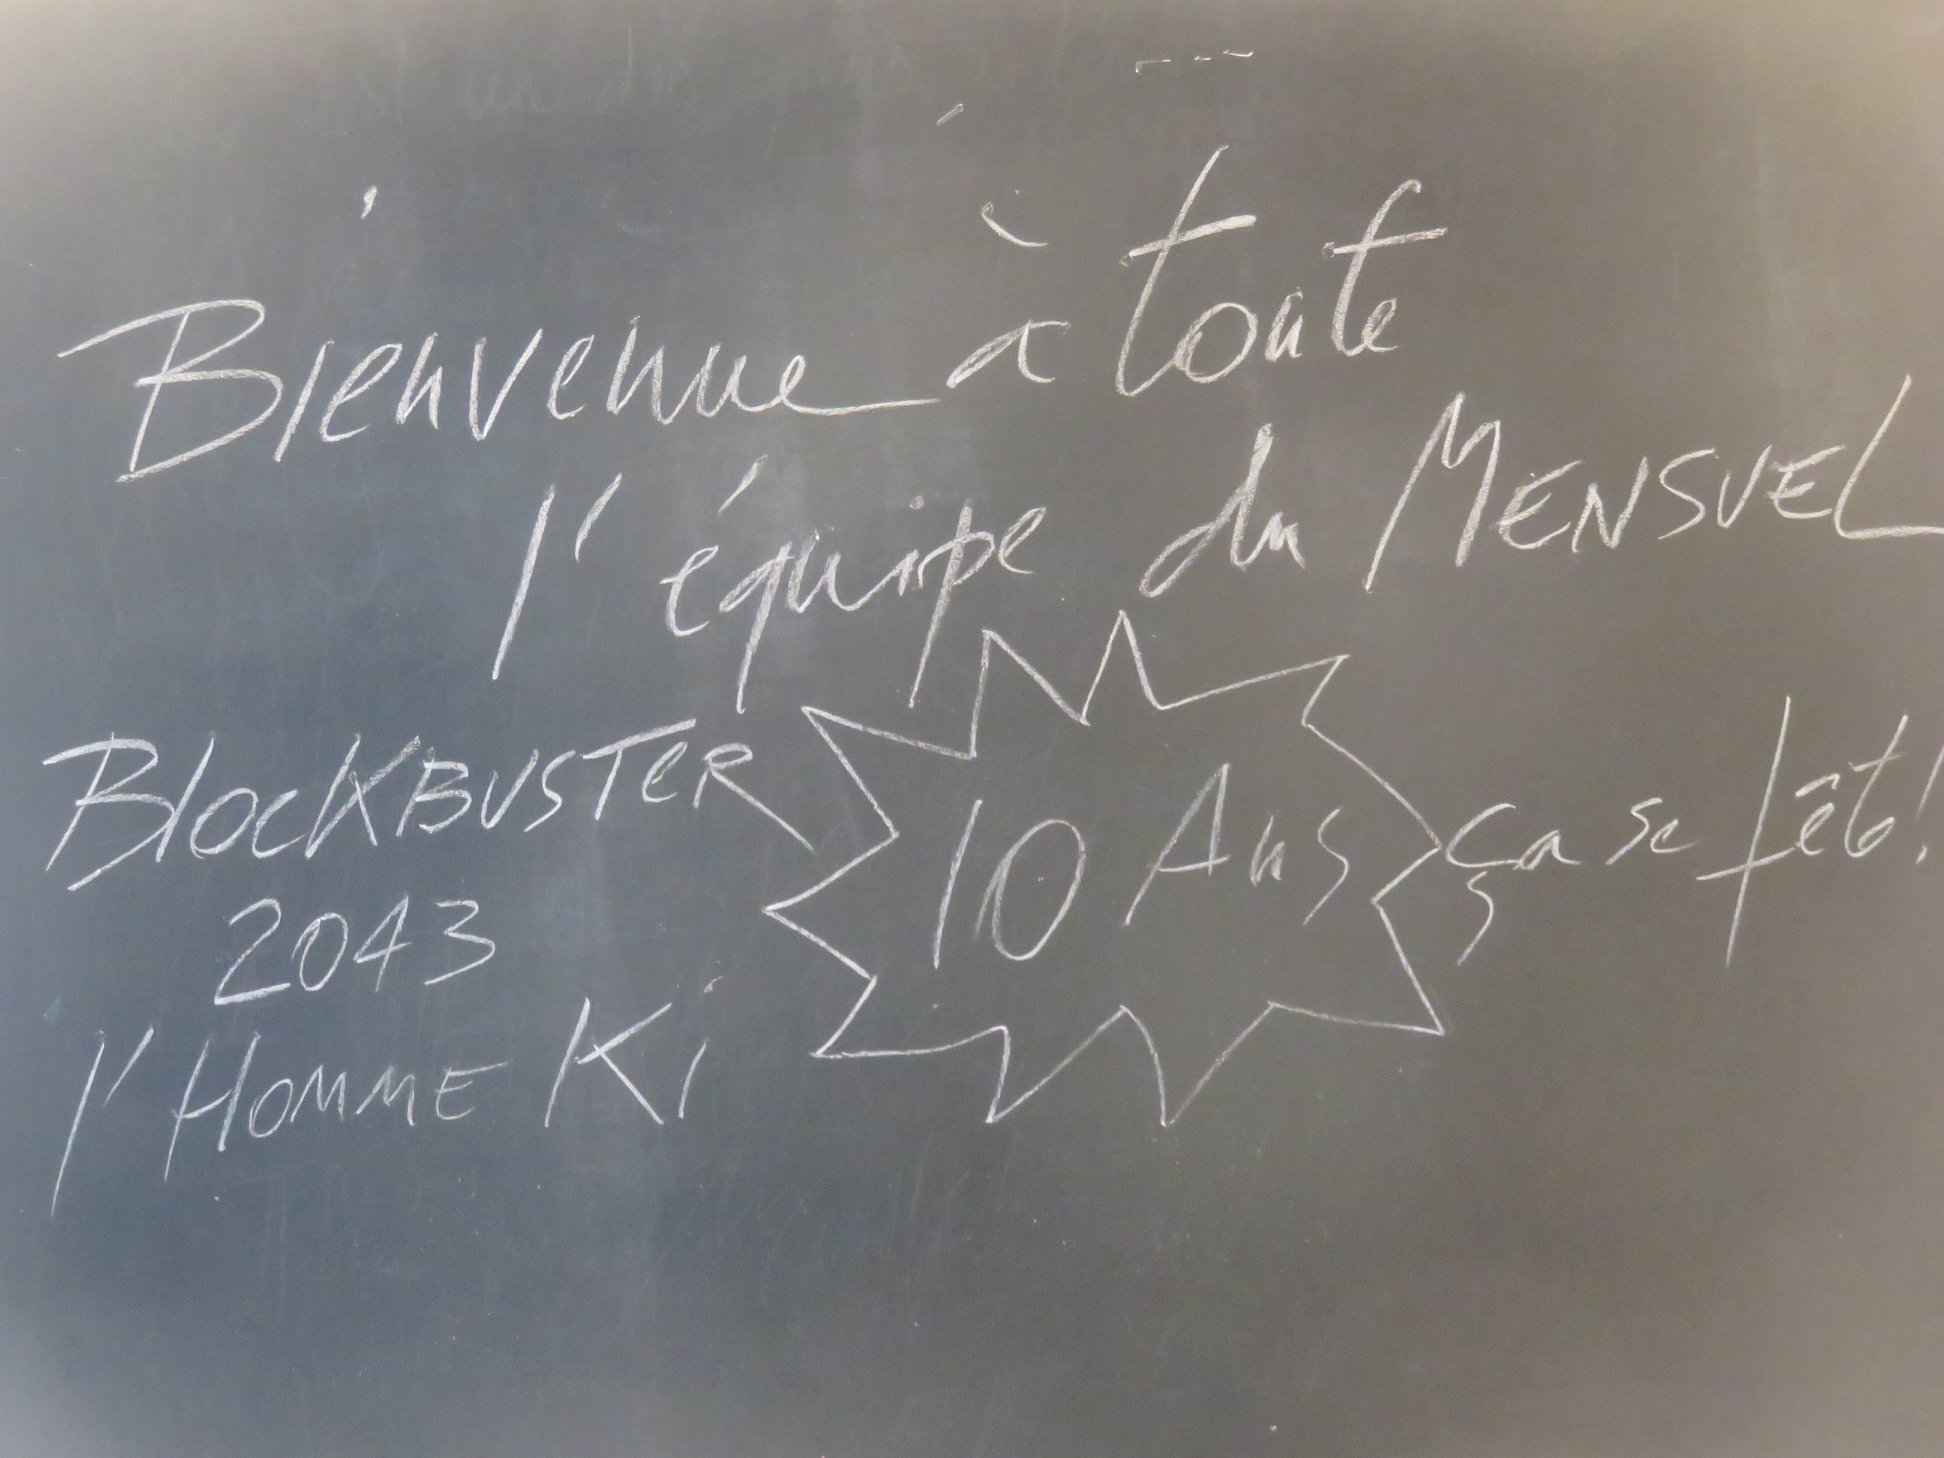 Bienvenue à toute
l'équipe du MENSUEL
BLOCKBUSTER
2043
l'HOMME Ki
10 Ans
ça se fête!